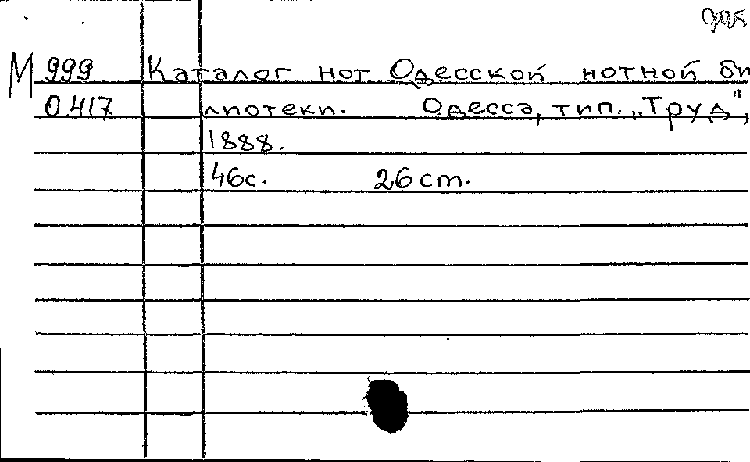 М 999 Каталог нот Одесской нотной би
0.417 лиотеки. Одесса, тип. „Труд",
1888.
46с. 26 cm.